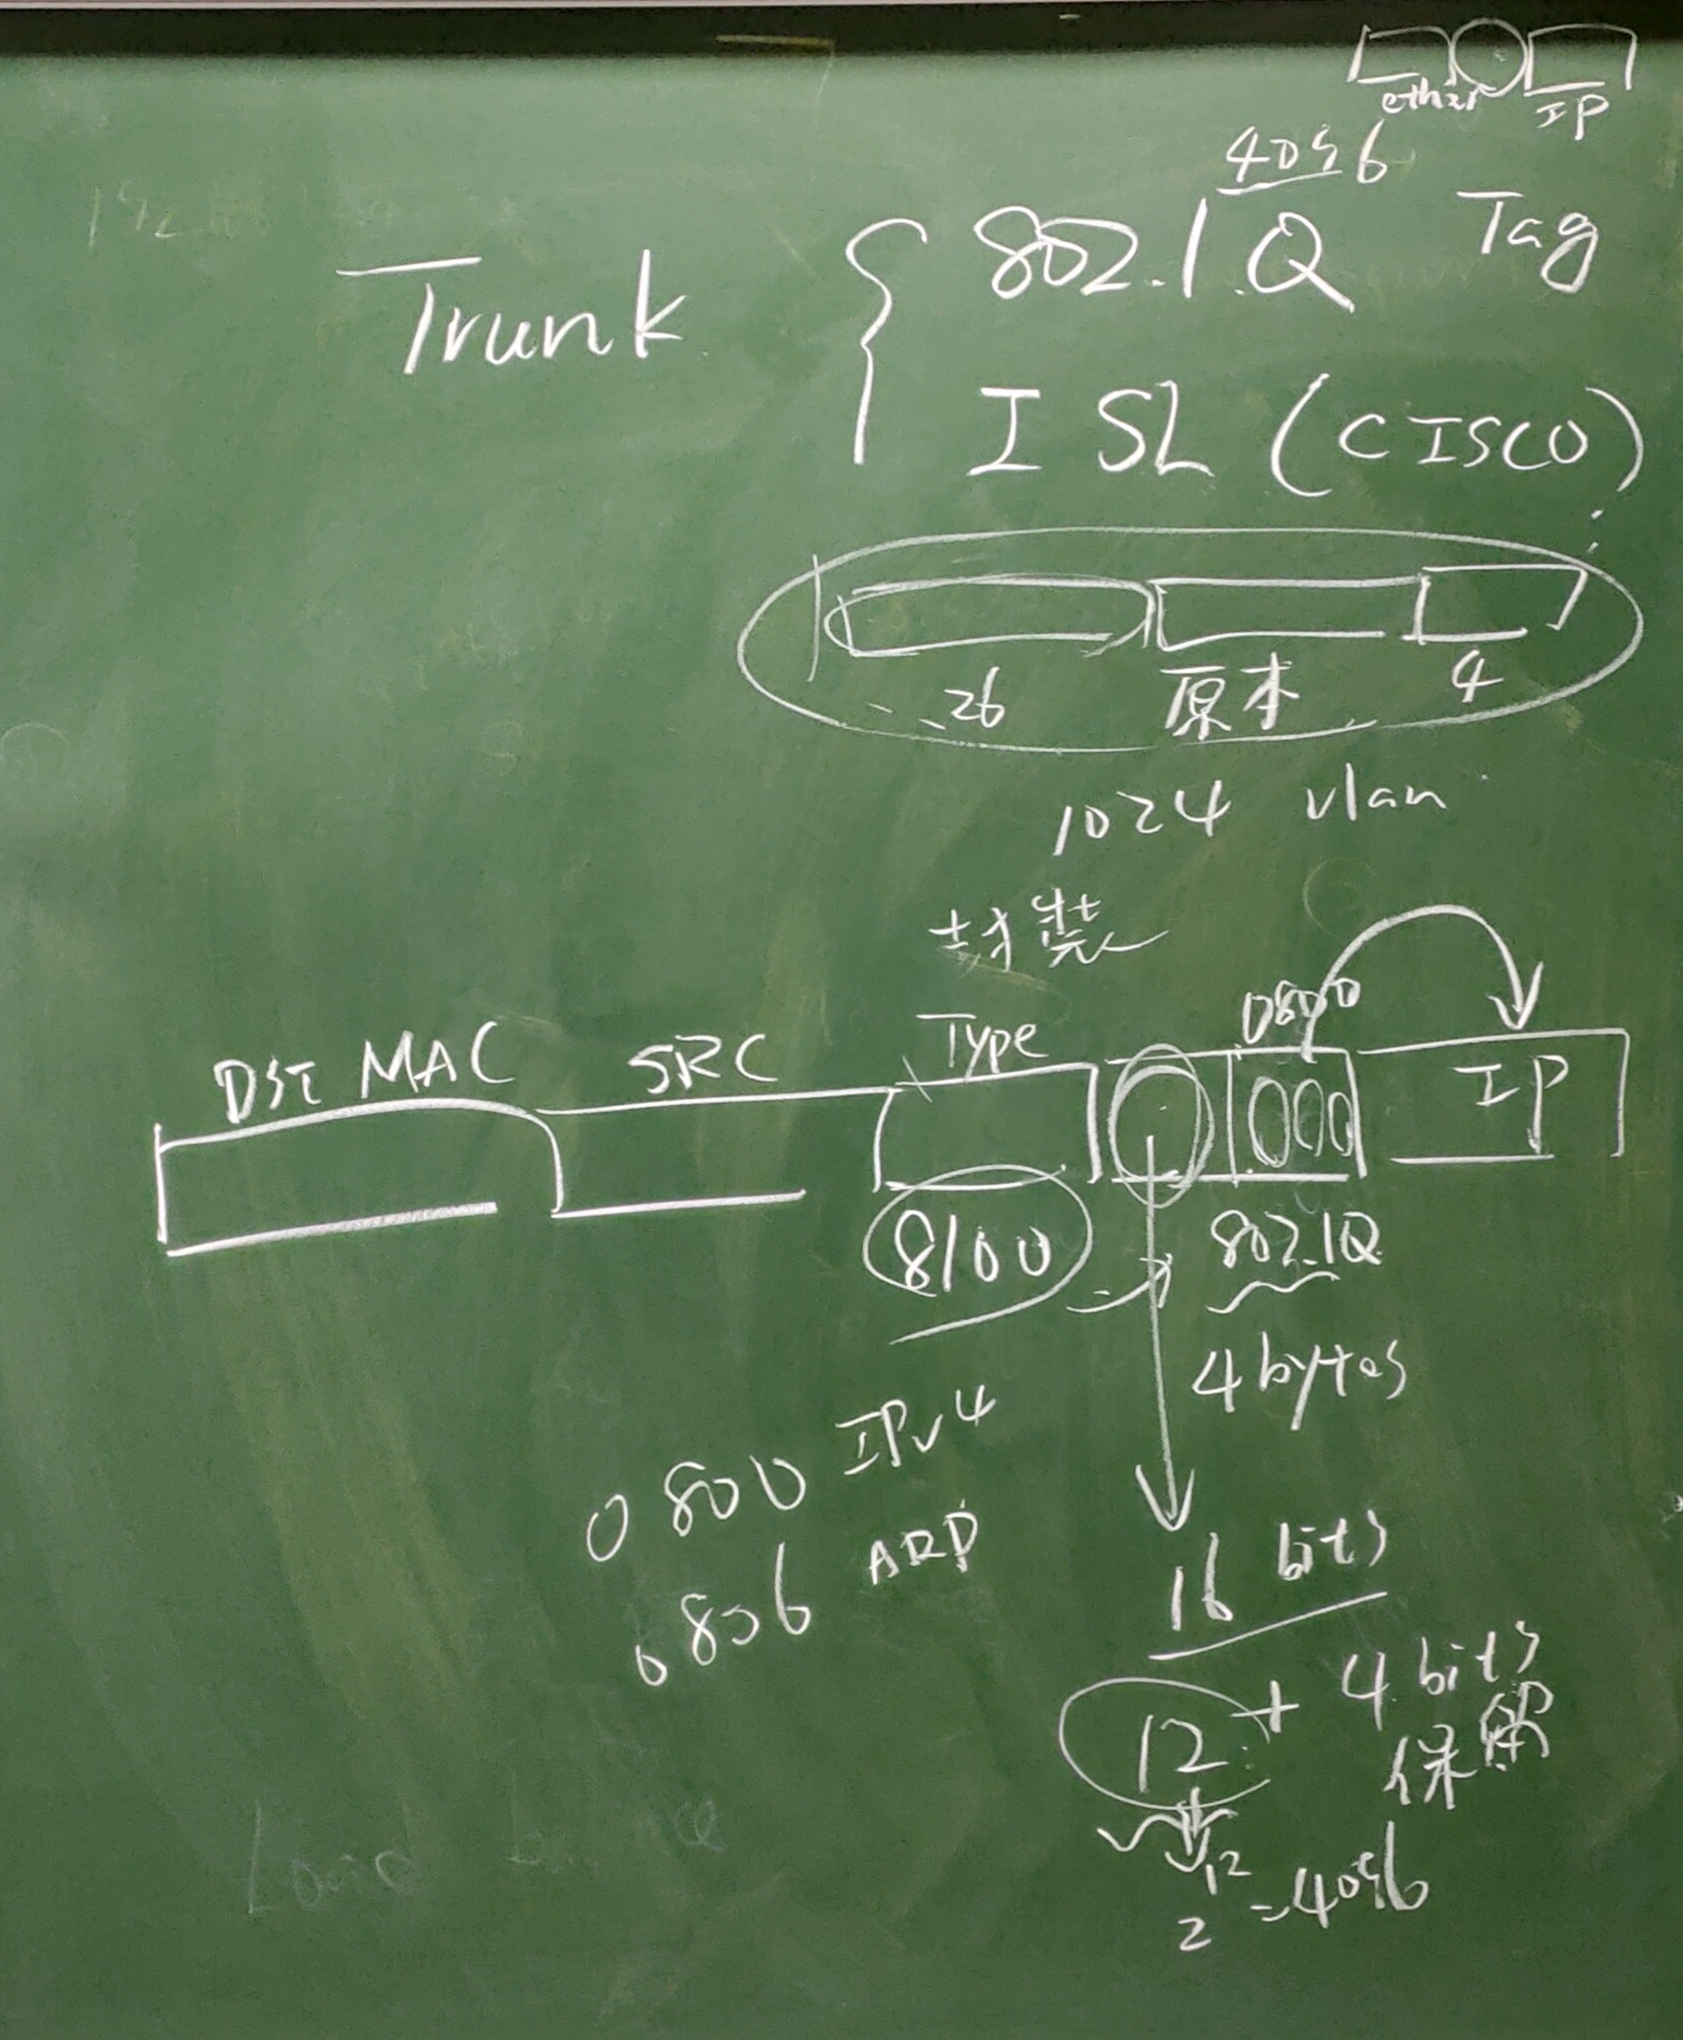 ether IP
4096
Trunk { 802.1Q Tag
ISL (CISCO)
26 原本 4
1024 vlan
封装
DST MAC SRC Type 0800
IP
8100 802.1Q
4 bytes
0800 IPv4
0806 ARP
16 bits
12 + 4 bits
保留
2^12 = 4096